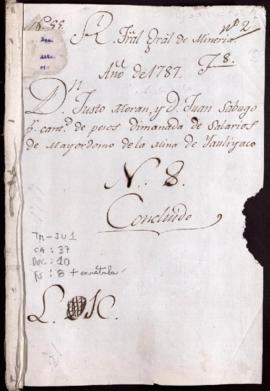 Nº 2
Rl. Trial. Gral. de Mineria
Año de 1787.
F 8.
Dn. Justo Moran, y D. Juan Sabugo
pr. cantd. de pesos dimanada de Salarios
de Mayordomo de la Mina de Yauliyaco
N. 8.
Concluido
TM-JU1
CA: 37
DOC: 20
fs: 8 + carátula